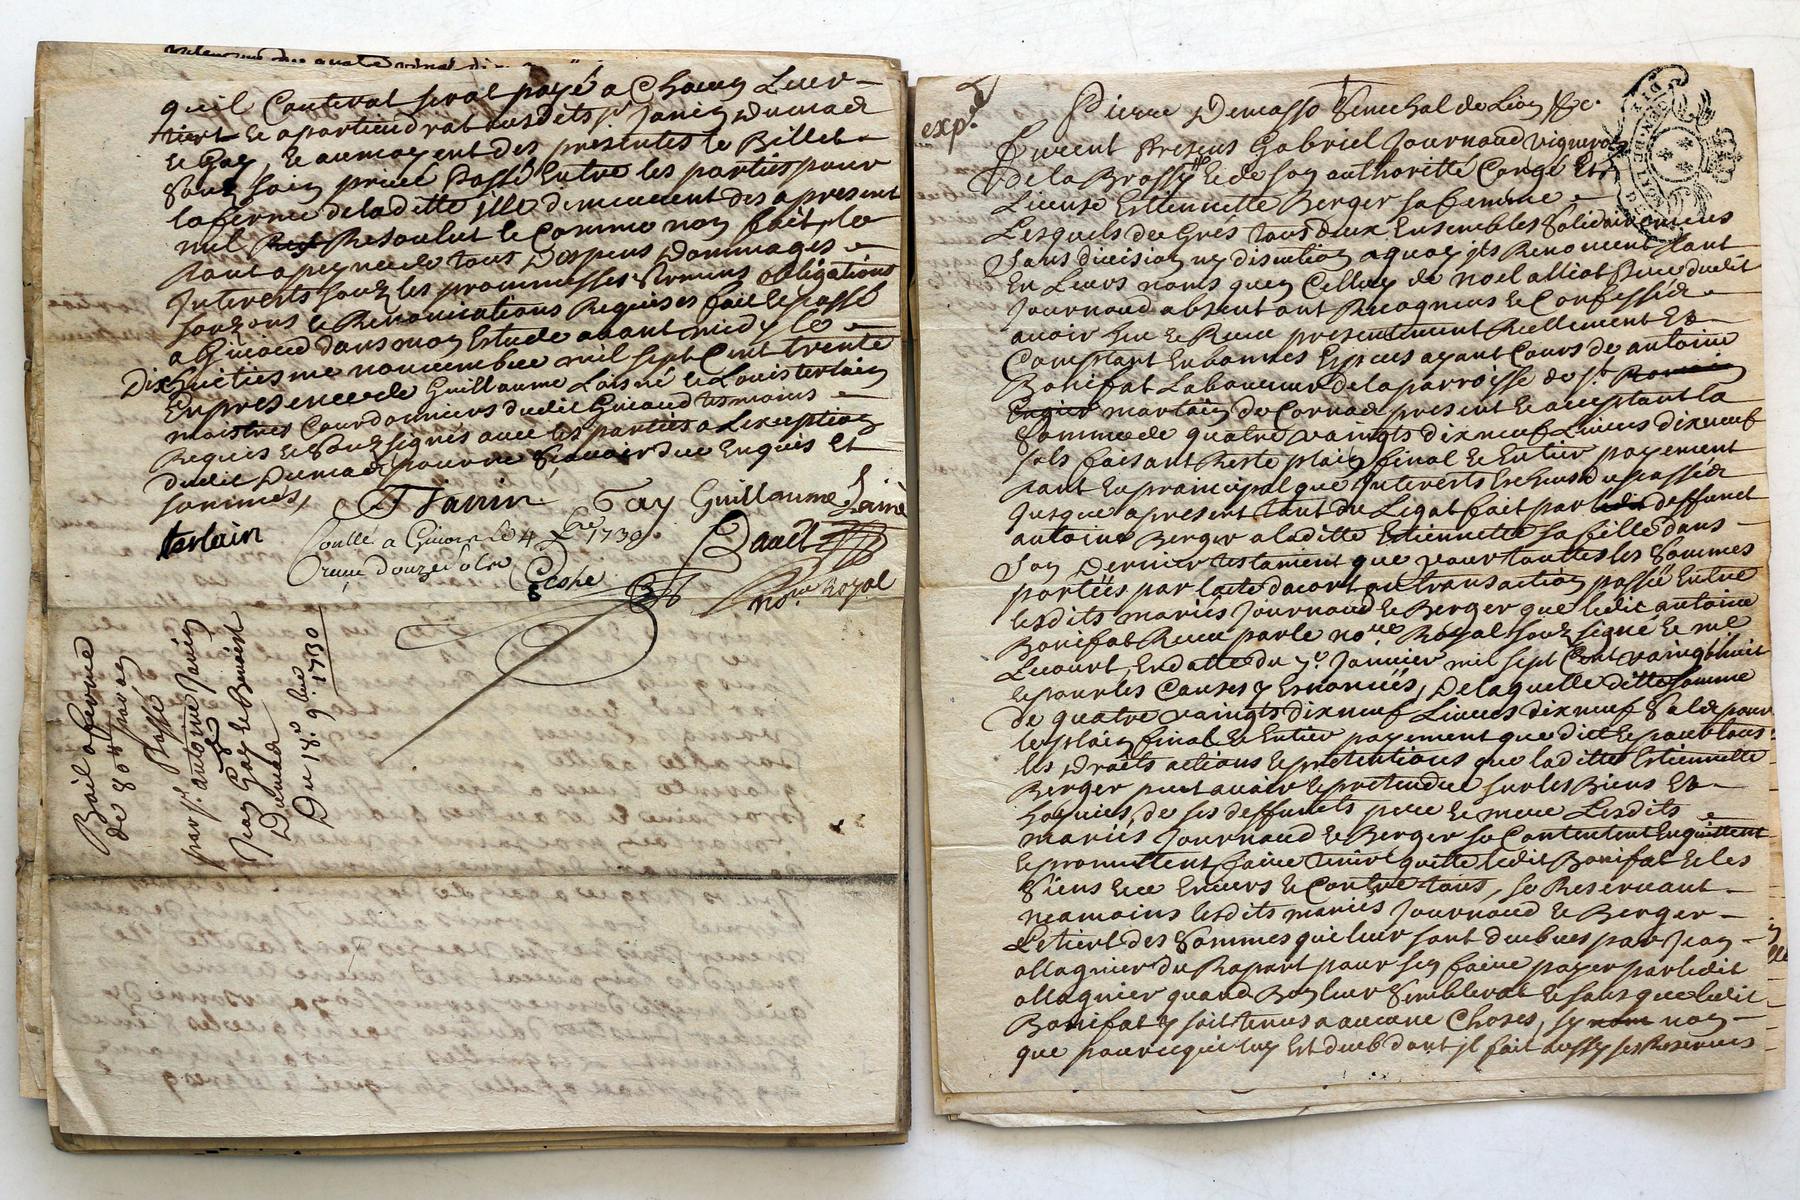 qu'il Conteral seral payé a Chacun Leur
tiert Et apartiendrat ausdits Sr Janin Dumad
Le Gay, Et aumoyent des presentes le Billet
Souz Sain privé Passé Entre les parties pour
la ferme deladitte Ille demeurent des apresent
nul Resoulut Et Comme non fait, le
tout apeyne de tous Despens Dommages
Interests souz les prommesses Obligations
Renonciations Requises fait Et passé
a Givord dans mon Estude avant midy le
Dixhuitiesme novembre mil sept Cent trente
En presence de Guillaume Laisné Et Louis terlain
maistres Courdonniers dudit Givord tesmoins
Requis Et Souzsignés avec les parties a L'exception
dudit Dumad pour ne Sçavoir de ce Enquis Et
sommés,
J Janin Gay Guillaume Lainé
terlain
Conllé a Givors Le 4 xbre 1730
Receu douze sols
notre Royal
Bail aferme
de 80 ll par an
Passé
par Sr antoine Janin
Jean Gay Et Benoist
Dumad
Du 18e 9bre
1730
exp.
Pierre Demasso Senechal de Lion &c.
Furent Presens Gabriel Journoud Vigneron
de la Brossy Et de son authoritté Congé Et
License Estiennette Berger sa femme
Lesquels de Grés tous deux Ensembles Solidairement
Sans division ny discution aquoy ils Renoncent tant
En Leurs noms qu'en Celluy de noel alliot Frere dudit
Journoud absent ont Recogneus Et Confessér
avoir heu Et Receu presentement Reellement Et
Comptant En bonnes Especes ayant Cours de antoine
Bonifat Laboureur de la parroisse de St Romain
Engier martain de Cornas present Et acceptant La
Somme de quatre vaingts dixneuf Livres dixneuf
sols faisant Reste plain final Et Entier payement
tant En principal que Interests Escheus du passér
Jusque apresent tant du Legat fait par deffunct
antoine Berger a laditte Estiennette sa fille dans
son Dernier testament que pour touttes les Sommes
portées par lacte dacort ou transaction passée Entre
lesdits mariés Journoud Et Berger que ledit antoine
Bonifat Receu par le nore Royal souz signé Et me
Lecourt, En datte du 7e Janvier mil sept Cent vaingthuit
Et pour les Causes y Enoncées, De laquelle ditte somme
de quatre vaingts dixneuf Livres dixneuf Sols pour
le plain final Et Entier payement que ditte Et pour tous
les Droits actions Et pretentions que laditte Estiennette
Berger peut avoir Et pretendre sur les Biens Et
hoyries, de ses deffuncts pere Et mere Lesdits
mariés Journoud Et Berger se Contentent En quittent
Et promettent faire tenir quitte ledit Bonifat Et les
Siens Envers Et Contre tous, se Reservant
neamoins lesdits mariés Journoud Et Berger
Letiert des Sommes qui leur sont deubues par Jean
allagnier du Rapart pour sen faire payer par ledit
allagnier quand Bon leur Semblerat Et sans que ledit
Bonifat y soit tenus a aucune Choses, sy non
que pour ce qui luy Est deub dont il fait aussy ses Reserves